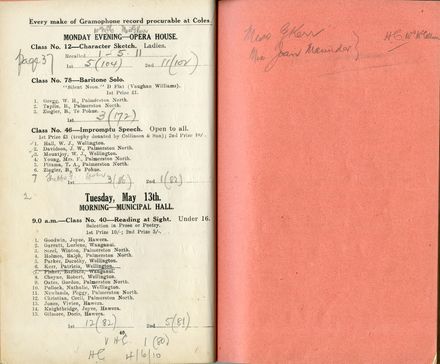 Every make of Gramophone record procurable at Coles.
MONDAY EVENING—OPERA HOUSE.
Class No. 12—Character Sketch. Ladies.
Page 37
Recalled 1 - 5 11
1st 5 (104) 2nd 11 (102)
Class No. 78—Baritone Solo.
"Silent Noon." D Flat (Vaughan Williams).
1st Prize £1.
1. Gregg, W. H., Palmerston North.
2. Taylor, B., Palmerston North.
3. Ziegler, B., Te Pohue.
3 (172)
Class No. 46—Impromptu Speech. Open to all.
1st Prize £2 (trophy donated by Collinson & Son); 2nd Prize 10/.
1. Hall, W. J., Wellington.
2. Davidson, J. W., Palmerston North.
3. Mountjoy, W., Wellington.
4. Young, Mrs. F., Palmerston North.
5. Pitama, T. A., Palmerston North.
6. Ziegler, B., Te Pohue.
7
3 (86) 2nd 1 (82)
2
Tuesday, May 13th.
MORNING—MUNICIPAL HALL.
9.0 a.m.—Class No. 40—Reading at Sight. Under 16.
Selection in Prose or Poetry.
1st Prize 10/-; 2nd Prize 5/-.
1. Goodwin, Joyce, Hawera.
2. Garrett, Lorlene, Wanganui.
3. Steel, Winton, Palmerston North.
4. Holmes, Ralph, Palmerston North.
5. Parker, Dorothy, Wellington.
6. Kerr, Patricia, Wellington.
7. Fisher, Barbara, Wanganui.
8. Cheyne, Robert, Wellington.
9. Oates, Gordon, Palmerston North.
10. Pollock, Nathalie, Wellington.
11. Newlands, Peggy, Palmerston North.
12. Christian, Cecil, Palmerston North.
13. Jones, Vivien, Hawera.
14. Knightbridge, Joyce, Hawera.
15. Gilmore, Doris, Hawera.
1st 12 (82) 2nd 5 (81)
V HC 1 (80)
HC 4/6/10
Miss E Kerr
Miss Joan Maunder
HC